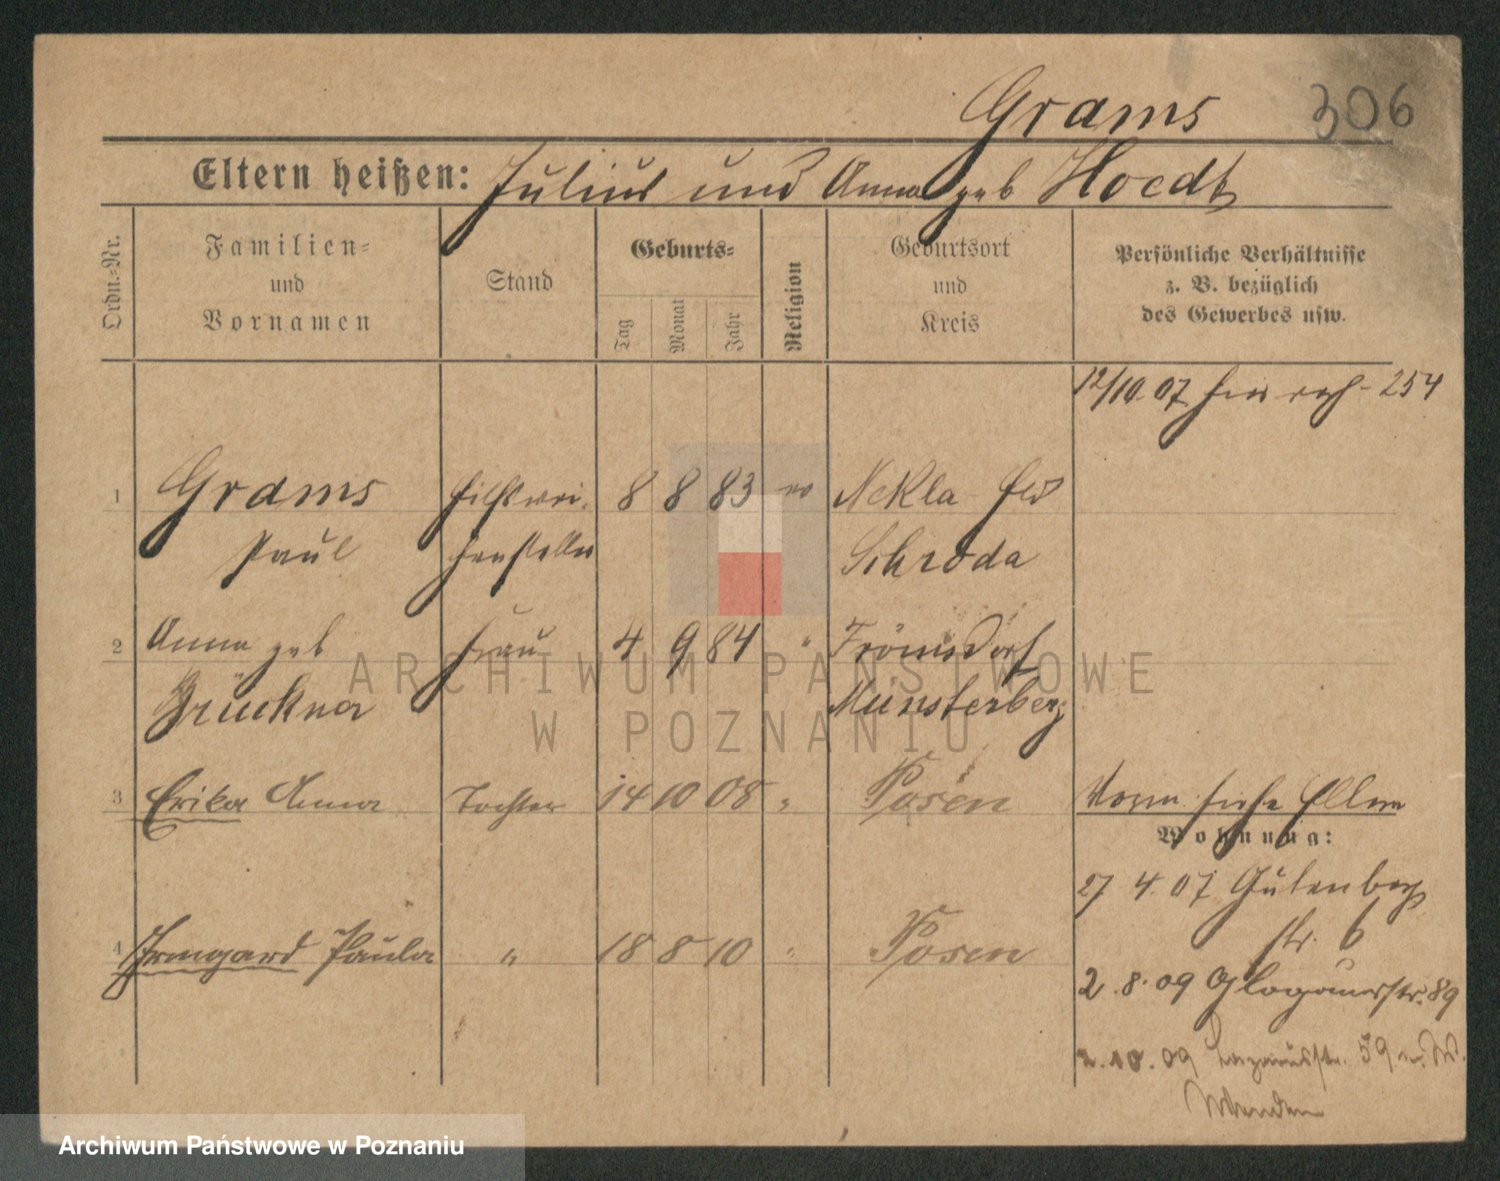 Grams 306
Eltern heißen: Julius und Anna geb Hoedt
Ordn.-Nr.
Familien- und Vornamen
Stand
Geburts-
Tag
Monat
Jahr
Religion
Geburtsort und Kreis
Persönliche Verhältnisse
z. B. bezüglich
des Gewerbes usw.
12/10.07 254
1 Grams Hilfswei- 8 8 83 ev Nekla
Paul chensteller Schroda
2 Anna geb Frau 4 9 84 " Frömsdorf
Brückner Münsterberg
3 Erika Anna Tochter 14 10 08 " Posen
Vorm. siehe Eltern
Wohnung:
27 4.07 Gutenberg
str. 6
4 Irmgard Paula " 18 8 10 " Posen
2.8.09 Glogauerstr. 89
2.10.09 Lazarusstr. 59
ARCHIWUM PAŃSTWOWE
W POZNANIU
Archiwum Państwowe w Poznaniu